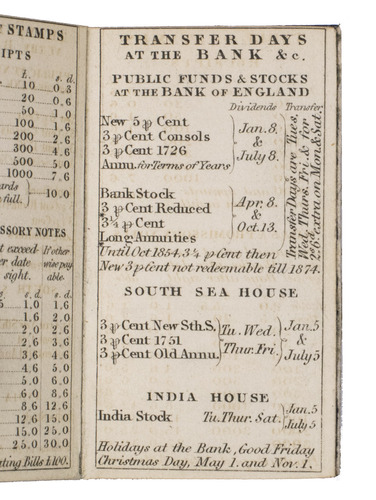 STAMPS
IPTS
L. s. d.
10 0.3
20 0.6
50 1.0
100 1.6
200 2.6
300 4.6
500 5.0
1000 7.6
ards
full. 10.0
SSORY NOTES
t exceed- If other
er date wise pay
sight. able.
s. d. s. d.
1.0 1.6
1.6 2.0
2.0 2.6
2.6 3.6
3.6 4.6
4.6 5.0
5.0 6.0
6.0 8.6
8.6 12.6
12.6 15.0
15.0 25.0
25.0 30.0
ating Bills £100.
TRANSFER DAYS
AT THE BANK &c.
PUBLIC FUNDS & STOCKS
AT THE BANK OF ENGLAND
Dividends Transfer
New 5 p Cent
3 p Cent Consols
3 p Cent 1726
Annu. for Terms of Years
Jan. 8.
&
July 8.
Bank Stock
3 p Cent Reduced
3¼ p Cent
Long Annuities
Apr. 8.
&
Oct. 13.
Transfer Days are Tues.
Wed. Thurs. Fri. & for
2/6 extra on Mon. & Sat.
Until Oct 1854, 3¼ p Cent then
New 3 p Cent not redeemable till 1874.
SOUTH SEA HOUSE
3 p Cent New Sth. S.
3 p Cent 1751
3 p Cent Old Annu.
Tu. Wed.
Thur. Fri.
Jan. 5
&
July 5
INDIA HOUSE
India Stock Tu. Thur. Sat. Jan. 5
July 5
Holidays at the Bank, Good Friday
Christmas Day, May 1. and Nov. 1.